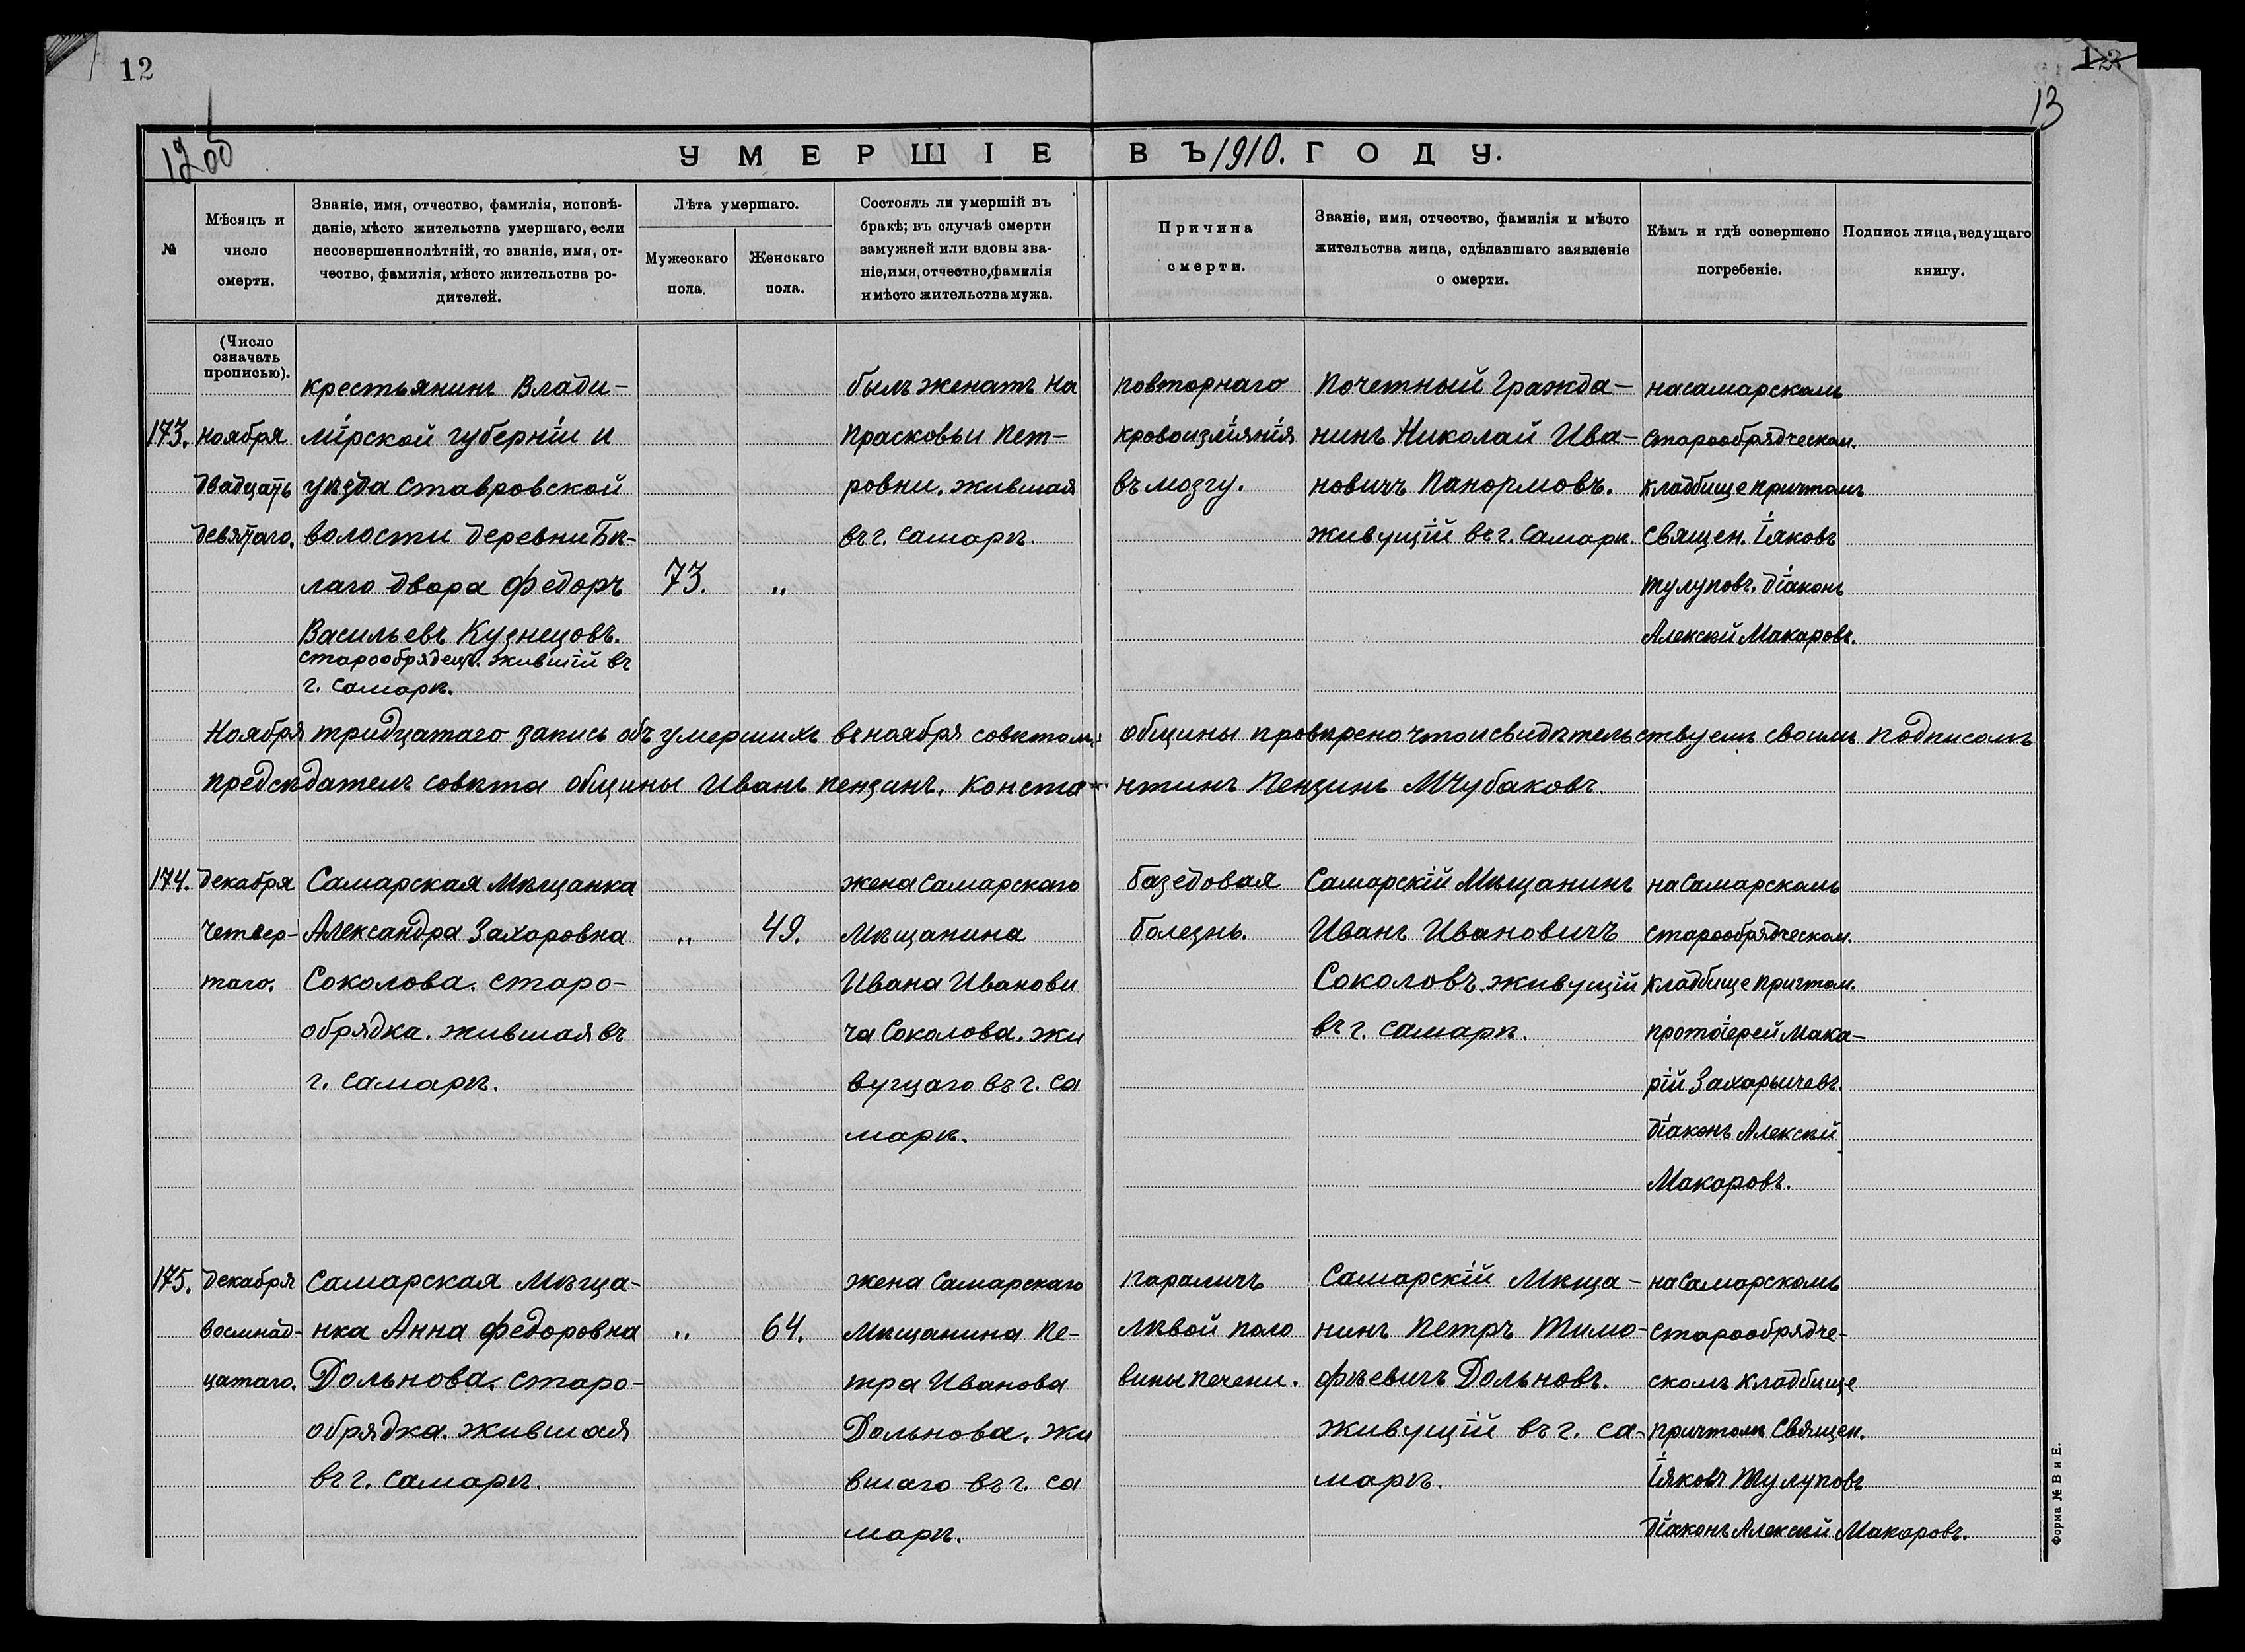 12
12
13
12 об
УМЕРШІЕ ВЪ 1910. ГОДУ.
№
Мѣсяцъ и
число
смерти.
Званіе, имя, отчество, фамилія, исповѣ-
даніе, мѣсто жительства умершаго, если
несовершеннолѣтній, то званіе, имя, от-
чество, фамилія, мѣсто жительства ро-
дителей.
Лѣта умершаго.
Мужескаго
пола.
Женскаго
пола.
Состоялъ ли умершій въ
бракѣ; въ случаѣ смерти
замужней или вдовы зва-
ніе, имя, отчество, фамилія
и мѣсто жительства мужа.
Причина
смерти.
Званіе, имя, отчество, фамилія и мѣсто
жительства лица, сдѣлавшаго заявленіе
о смерти.
Кѣмъ и гдѣ совершено
погребеніе.
Подпись лица, ведущаго
книгу.
(Число
означать
прописью).
173.
ноября
двадцать
девятаго.
крестьянинъ Влади-
мірской губерніи и
уѣзда ставровской
волости деревни Бѣ-
лаго двора Федоръ
Васильевъ Кузнецовъ.
старообрядецъ. жившій въ
г. самарѣ.
73.
"
былъ женатъ на
прасковьи пет-
ровни. жившая
въ г. самарѣ.
повторнаго
кровоизліянія
въ мозгу.
Почетный гражда-
нинъ Николай Ива-
новичъ Панормовъ.
живущій въ г. самарѣ.
на самарскомъ
старообрядческом.
кладбище причтомъ
священ. Іяковъ
тулуповъ. діаконъ
Алексѣй Макаровъ.
Ноября тридцатаго запись объ умершихъ въ ноября совѣтомъ общины провѣрено что и свидѣтельствуемъ своимъ подписомъ
предсѣдатель совѣта общины Иванъ пензинъ. Константинъ Пензинъ МЧубаковъ.
174.
декабря
четвер-
таго.
Самарская Мѣщанка
Александра Захаровна
Соколова. старо-
обрядка. жившая въ
г. самарѣ.
"
49.
жена самарскаго
мѣщанина
Ивана Иванови
ча Соколова. жи
вущаго въ г. са
марѣ.
базедовая
болезнь.
Самарскій Мѣщанинъ
Иванъ Ивановичъ
Соколовъ. живущій
въ г. самарѣ.
на самарскомъ
старообрядческом.
кладбище причтом.
протоіерей Мака-
рій Захарычевъ.
діаконъ Алексѣй
Макаровъ.
175.
декабря
восмнад-
цатаго.
самарская мѣща-
нка Анна Федоровна
Дольнова. старо-
обрядка. жившая
въ г. самарѣ.
"
64.
жена самарскаго
мѣщанина Пе-
тра Иванова
Дольнова. жи
вшаго въ г. са
марѣ.
параличъ
лѣвой поло
вины печени.
самарскій мѣща-
нинъ Петръ Тимо-
фѣевичъ Дольновъ.
живущій въ г. са-
марѣ.
на самарскомъ
старообрядче-
скомъ кладбище
причтомъ священ.
Іяковъ Тулуповъ
діаконъ Алексѣй Макаровъ.
Форма № В и Е.